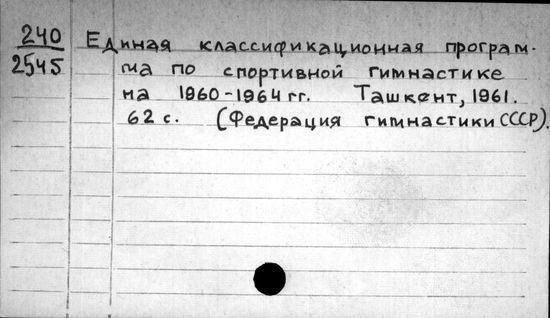 240
2545
Единая классификационная програм-
ма по спортивной гимнастике
на 1960-1964 гг. Ташкент, 1961.
62 с. (Федерация гимнастики СССР).